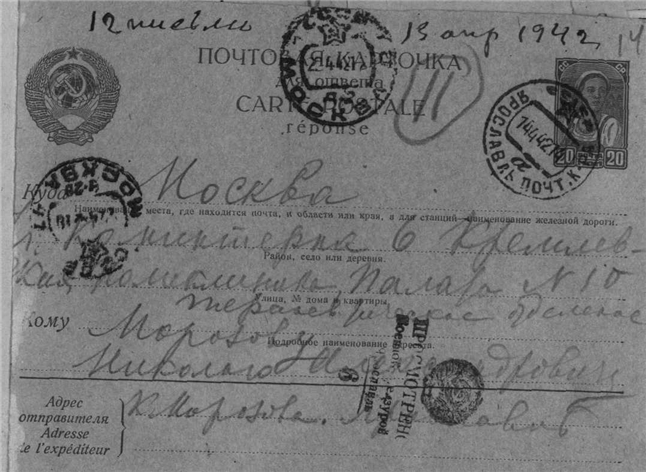 12 письмо 13 апр 1942 14
ПОЧТОВАЯ КАРТОЧКА
для ответа
CARTE POSTALE
réponse
11
МОСКВА
ЯРОСЛАВЛЬ ПОЧТ.
14442
20 20
МОСКВА
Куда Москва
Наименование места, где находится почта, и области или края, а для станций—наименование железной дороги.
Коминтерна 6 Кремлев-
Район, село или деревня.
ская поликлиника, Палата N 10
Улица, № дома и квартиры
отделение
Кому Морозову
Подробное наименование адресата.
Николаю
ПРОСМОТРЕНО
Военной Цензурой
Ярославль
6
Адрес
отправителя
Adresse
de l'expéditeur
К. Морозова. Ярославль